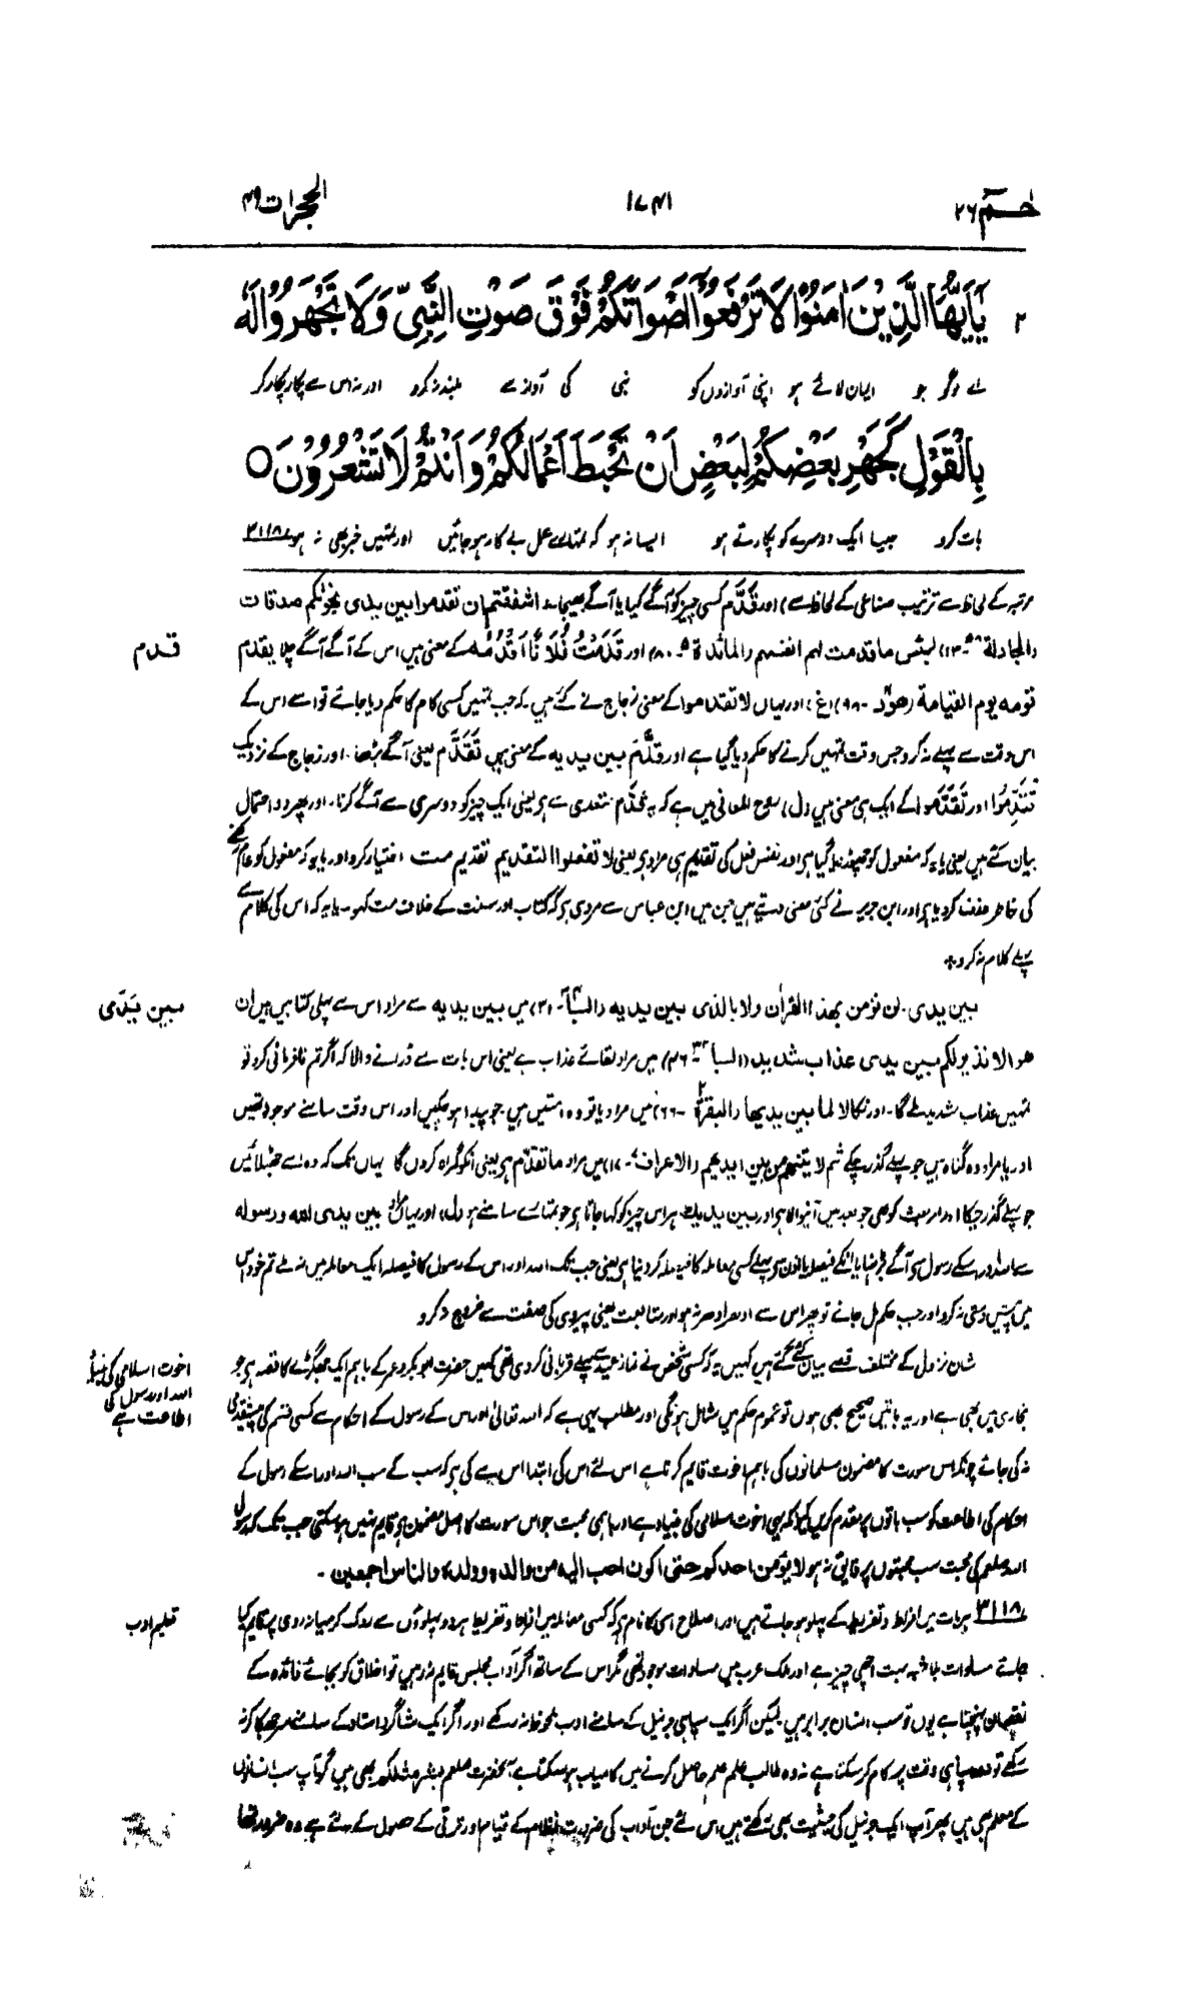 حٰـم ٢٦
١٧٤١
الحجرات ٤٩
٢ يٰٓاَيُّهَا الَّذِيْنَ اٰمَنُوْا لَا تَرْفَعُوْٓا اَصْوَاتَكُمْ فَوْقَ صَوْتِ النَّبِيِّ وَلَا تَجْهَرُوْا لَهٗ
اے لوگو جو ایمان لائے ہو اپنی آوازوں کو نبی کی آواز سے بلند نہ کرو اور نہ اس سے پکار پکار کر
بِالْقَوْلِ كَجَهْرِ بَعْضِكُمْ لِبَعْضٍ اَنْ تَحْبَطَ اَعْمَالُكُمْ وَاَنْتُمْ لَا تَشْعُرُوْنَ ○
بات کرو جیسا ایک دوسرے کو پکارتے ہو ایسا نہ ہو کہ تمہارے عمل بے کار ہو جائیں اور تمہیں خبر بھی نہ ہو ٣١١٨
مرتبہ کے لحاظ سے ترتیب صناعی کے لحاظ سے) اور قَدَّم کسی چیز کو آگے کیا یا آگے بھیجا ءاشفقتم ان تقدموا بین یدی نجوٰکم صدقات
قدم
(المجادلة ٥٨-١٣) لبئس ما قدمت لهم انفسهم (المائدة ٥-٨٠) اور قَدَمْتُ فُلَانًا اَقْدُمُهٗ کے معنی ہیں اس کے آگے آگے چلا یقدم
قومه يوم القيامة (هود -٩٨) (غ) اور یہاں لا تقدموا کے معنی زجاج نے کئے ہیں کہ جب تمہیں کسی کام کا حکم دیا جائے تو اسے اس کے
اس وقت سے پہلے نہ کرو جس وقت تمہیں کرنے کا حکم دیا گیا ہے اور قَدَّمَ بین یدیه کے معنی ہیں تَقَدَّم یعنی آگے بڑھا۔ اور زجاج کے نزدیک
تُقَدِّمُوا اور تَقَدَّمُوا کے ایک ہی معنی ہیں (ل) روح المعانی میں ہے کہ یہ قَدَّم متعدی سے ہے یعنی ایک چیز کو دوسری سے آگے کرنا۔ اور پھر دو احتمال
بیان کئے ہیں یعنی یا یہ کہ مفعول کو چھوڑ دیا گیا ہے اور نفس فعل کی تقدیم ہی مراد ہے یعنی لا تفعلوا التقدیم تقدیم مت اختیار کرو اور یا یہ کہ مفعول کو عام رکھنے
کی خاطر حذف کر دیا ہے اور ابن جریر نے کئی معنی دیئے ہیں جن میں ابن عباس سے مروی ہے کہ کتاب اور سنت کے خلاف مت کہو۔ یا یہ کہ اس کی کلام سے
پہلے کلام نہ کرو ٭
بین یَدَی
بین یدی۔ لن نؤمن بهذا القرآن ولا بالذی بین یدیه (السبا ٣٤-٣١) میں بین یدیه سے مراد اس سے پہلی کتابیں ہیں ان
هو الا نذیر لکم بین یدی عذاب شدید (السبا ٣٤-٤٦) میں مراد لقائے عذاب ہے یعنی اس بات سے ڈرانے والا کہ اگر تم نافرمانی کرو تو
تمہیں عذاب شدید ملے گا۔ اور نکالا لما بین یدیها (البقرة ٢-٦٦) میں مراد یا تو وہ امتیں ہیں جو پیدا ہو چکیں اور اس وقت سامنے موجود تھیں
اور یا مراد وہ گناہ ہیں جو پہلے گذر چکے ثم لاٰتینهم من بین ایدیهم (الاعراف ٧-١٧) میں مراد ما تقدّم ہے یعنی انکو گمراہ کروں گا یہاں تک کہ وہ اسے جھٹلائیں
جو پہلے گذر چکا اور امر بعث کو بھی جو بعد میں آنیوالا ہے اور بین یدیک ہر اس چیز کو کہا جاتا ہے جو تمہارے سامنے ہو (ل) اور یہاں مراد بین یدی اللہ ورسولہ
سے اللہ اور اسکے رسول سے آگے بڑھنا یا انکے فیصلہ یا اذن سے پہلے کسی معاملہ کا فیصلہ کر دینا ہے یعنی جب تک اللہ اور اس کے رسول کا فیصلہ ایک معاملہ میں نہ ملے تم خود اس
میں پیش دستی نہ کرو اور جب حکم مل جائے تو پھر اس سے ادھر ادھر نہ ہو اور متابعت یعنی پیروی کی صفت سے خروج نہ کرو
اخوت اسلامی کی بنیاد
اللہ اور رسول کی
اطاعت ہے
شان نزول کے مختلف قصے بیان کئے گئے ہیں کہیں یہ کہ کسی شخص نے نماز عید سے پہلے قربانی کر دی تھی کہیں حضرت ابوبکر و عمر کے باہم ایک جھگڑے کا قصہ ہے جو
بخاری میں بھی ہے اور یہ باتیں صحیح بھی ہوں تو عموم حکم میں شامل ہونگی اور مطلب یہی ہے کہ اللہ تعالیٰ اور اس کے رسول کے احکام سے کسی قسم کی پیشقدمی
نہ کی جائے چونکہ اس سورت کا مضمون مسلمانوں کی باہم اخوت قایم کرنا ہے اس لئے اس کی ابتدا اس سے کی ہے کہ سب کے سب اللہ اور اسکے رسول کے
احکام کی اطاعت کو سب باتوں پر مقدم کریں کیونکہ یہی اخوت اسلامی کی بنیاد ہے اور باہمی محبت جو اس سورت کا اصل مضمون ہے قایم نہیں ہو سکتی جب تک کہ رسول
اللہ صلعم کی محبت سب محبتوں پر فایق نہ ہو لا یؤمن احدکم حتی اکون احب الیه من والده وولده والناس اجمعین۔
تعلیم ادب
٣١١٨ ہر بات میں افراط و تفریط کے پہلو ہو جاتے ہیں اور اصلاح اسی کا نام ہے کہ کسی معاملہ میں افراط و تفریط ہر دو پہلوؤں سے روک کر میانہ روی پر قایم کیا
جائے مساوات بلاشبہ بہت اچھی چیز ہے اور ملک عرب میں مساوات موجود تھی مگر اس کے ساتھ اگر آداب مجلس قایم نہ رہیں تو اخلاق کو بجائے فائدہ کے
نقصان پہنچتا ہے یوں تو سب انسان برابر ہیں لیکن اگر ایک سپاہی جرنیل کے سامنے ادب ملحوظ نہ رکھے اور اگر ایک شاگرد استاد کے سامنے سر جھکا کر نہ
رکھے تو نہ وہ سپاہی وقت پر کام کر سکتا ہے نہ وہ طالب علم علم حاصل کرنے میں کامیاب ہو سکتا ہے آنحضرت صلعم بشر مثلکم بھی ہیں گو آپ سب انسانوں
کے معلم بھی ہیں پھر آپ ایک جرنیل کی حیثیت بھی رکھتے ہیں اس لئے جن آداب کی ضرورت نظام کے قیام اور ترقی کے حصول کے لئے ہے وہ ضرور تھا